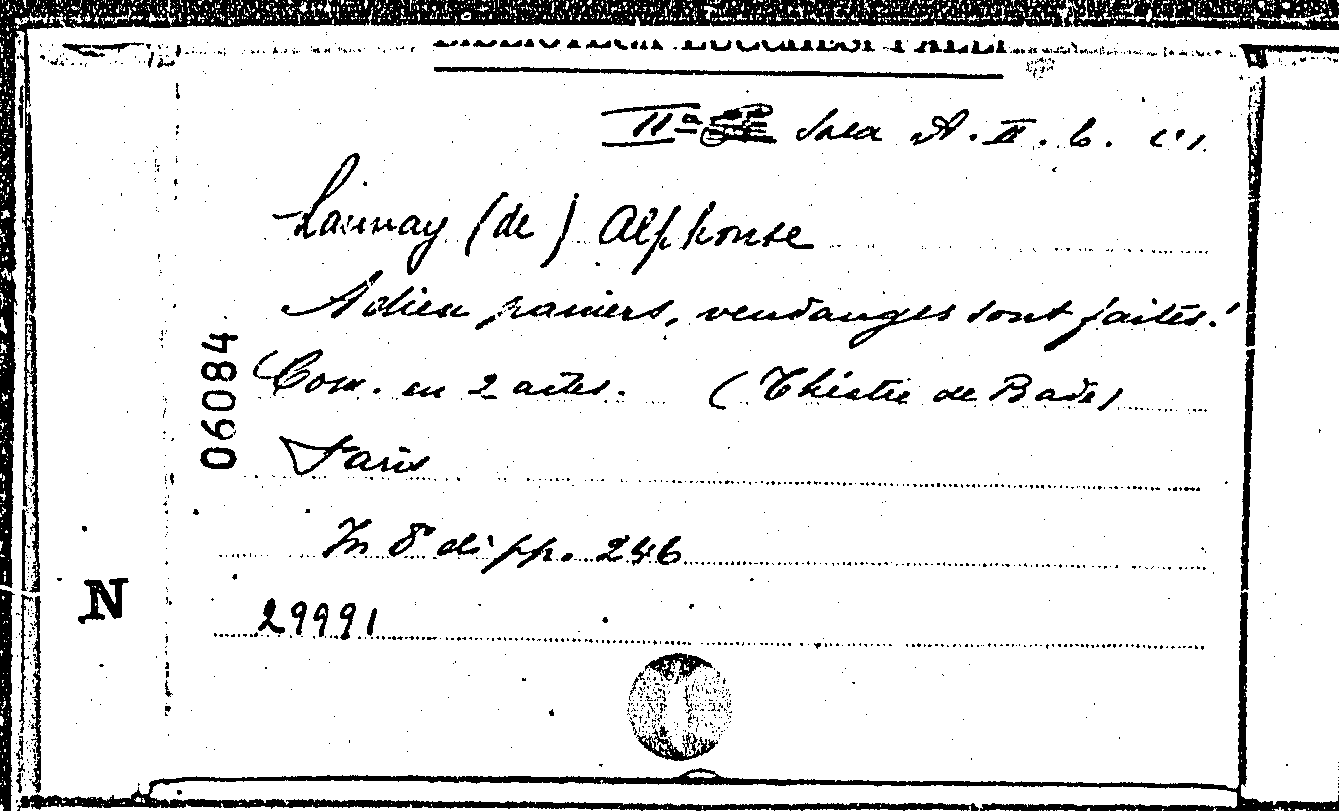 BIBLIOTECA LUCCHESI PALLI
IIª Sala A. II. 6. (1)
Launay (de) Alphonse
Adieu paniers, vendanges sont faites!
Com. en 2 actes. (Théâtre de Bade)
06084
Paris
In 8° di pp. 246
N
29991